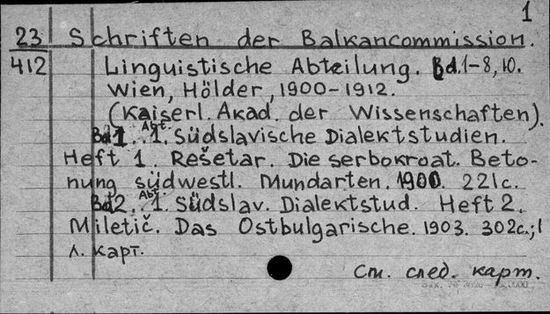 1
23 Schriften der Balkancommission.
412 Linguistische Abteilung. Bd.1-8, 10.
Wien, Hölder, 1900-1912.
(Kaiserl. Akad. der Wissenschaften).
Bd 1. Abt. 1. Südslavische Dialektstudien.
Heft 1. Rešetar. Die serbokroat. Beto-
nung südwestl. Mundarten. 1900. 221c.
Bd 2. Abt. 1. Südslav. Dialektstud. Heft 2.
Miletič. Das Ostbulgarische. 1903. 302c.; 1
л. карт.
См. след. карт.